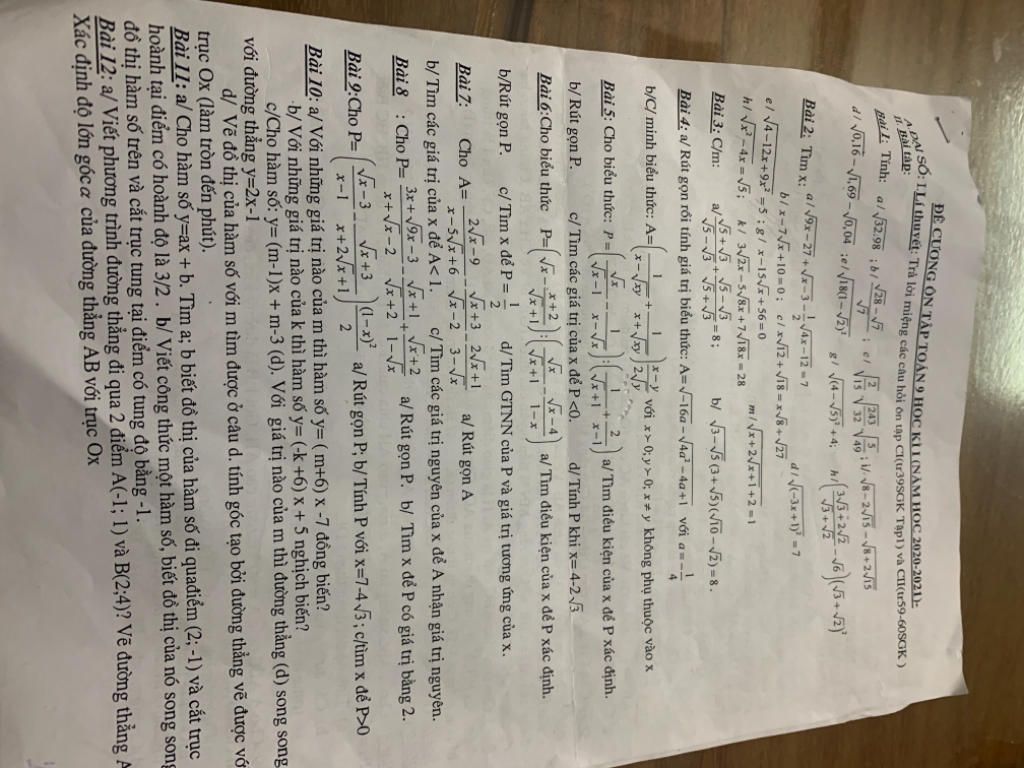 ĐỀ CƯƠNG ÔN TẬP TOÁN 9 HỌC KÌ I (NĂM HỌC 2020-2021):
A ĐẠI SỐ: I.Lí thuyết: Trả lời miệng các câu hỏi ôn tập CI(tr39SGK Tập1) và CII(tr59-60SGK )
II. Bài tập:
Bài 1: Tính: a/ √32.98 ; b/ (√28 − √7)/√7 ; c/ √(2/15) √(243/32) √(5/49) ; i/ √(8 − 2√15) − √(8 + 2√15)
d/ √0,16 − √1,69 − √0,04 ; e/ √(18(1 − √2)²) g/ √((4 − √5)²) + 4; h/ ((3√3 + 2√2)/(√3 + √2) − √6)(√3 + √2)²
Bài 2: Tìm x; a/ √(9x − 27) + √(x − 3) − 1/2 √(4x − 12) = 7 d/ √((−3x + 1)²) = 7
b/ x − 7√x + 10 = 0 ; c/ x√12 + √18 = x√8 + √27
e/ √(4 − 12x + 9x²) = 5 ; g/ x − 15√x + 56 = 0
h/ √(x² − 4x) = √5 ; k/ 3√2x − 5√8x + 7√18x = 28 m/ √(x + 2√(x + 1) + 2) = 1
Bài 3: C/m: a/ (√5 + √3)/(√5 − √3) + (√5 − √3)/(√5 + √3) = 8 : b/ √(3 − √5) (3 + √5)(√10 − √2) = 8 .
Bài 4: a/ Rút gọn rồi tính giá trị biểu thức: A = √(−16a) − √(4a² − 4a + 1) với a = −1/4
b/C/ minh biểu thức: A = (1/(x − √xy) + 1/(x + √xy)) (x − y)/(2√y) với x > 0; y > 0; x ≠ y không phụ thuộc vào x
Bài 5: Cho biểu thức: P = (√x/(√x − 1) − 1/(x − √x)) : (1/(√x + 1) + 2/(x − 1)) a/ Tìm điều kiện của x để P xác định.
b/ Rút gọn P. c/ Tìm các giá trị của x để P <0. d/ Tính P khi x= 4-2√3
Bài 6:Cho biểu thức P= (√x − (x + 2)/(√x + 1)) : (√x/(√x + 1) − (√x − 4)/(1 − x)) a/ Tìm điều kiện của x để P xác định.
b/Rút gọn P. c/ Tìm x để P = 1/2 d/ Tìm GTNN của P và giá trị tương ứng của x.
Bài 7: Cho A= (2√x − 9)/(x − 5√x + 6) − (√x + 3)/(√x − 2) − (2√x + 1)/(3 − √x) a/ Rút gọn A
b/ Tìm các giá trị của x để A< 1. c/ Tìm các giá trị nguyên của x để A nhận giá trị nguyên.
Bài 8 : Cho P= (3x + √9x − 3)/(x + √x − 2) − (√x + 1)/(√x + 2) + (√x + 2)/(1 − √x) a/ Rút gọn P. b/ Tìm x để P có giá trị bằng 2.
Bài 9:Cho P= ((√x − 3)/(x − 1) − (√x + 3)/(x + 2√x + 1)) (1 − x)²/2 a/ Rút gọn P; b/ Tính P với x=7-4√3; c/tìm x để P>0
Bài 10: a/ Với những giá trị nào của m thì hàm số y= ( m+6) x -7 đồng biến?
b/ Với những giá trị nào của k thì hàm số y= (-k +6) x + 5 nghịch biến?
c/Cho hàm số: y= (m-1)x + m-3 (d). Với giá trị nào của m thì đường thẳng (d) song song
với đường thẳng y=2x-1
d/ Vẽ đồ thị của hàm số với m tìm được ở câu d. tính góc tạo bởi đường thẳng vẽ được với
trục Ox (làm tròn đến phút).
Bài 11: a/ Cho hàm số y=ax + b. Tìm a; b biết đồ thị của hàm số đi quađiểm (2;-1) và cắt trục
hoành tại điểm có hoành độ là 3/2 . b/ Viết công thức một hàm số, biết đồ thị của nó song song
đồ thị hàm số trên và cắt trục tung tại điểm có tung độ bằng -1.
Bài 12: a/ Viết phương trình đường thẳng đi qua 2 điểm A(-1; 1) và B(2;4)? Vẽ đường thẳng A
Xác định độ lớn góc α của đường thẳng AB với trục Ox